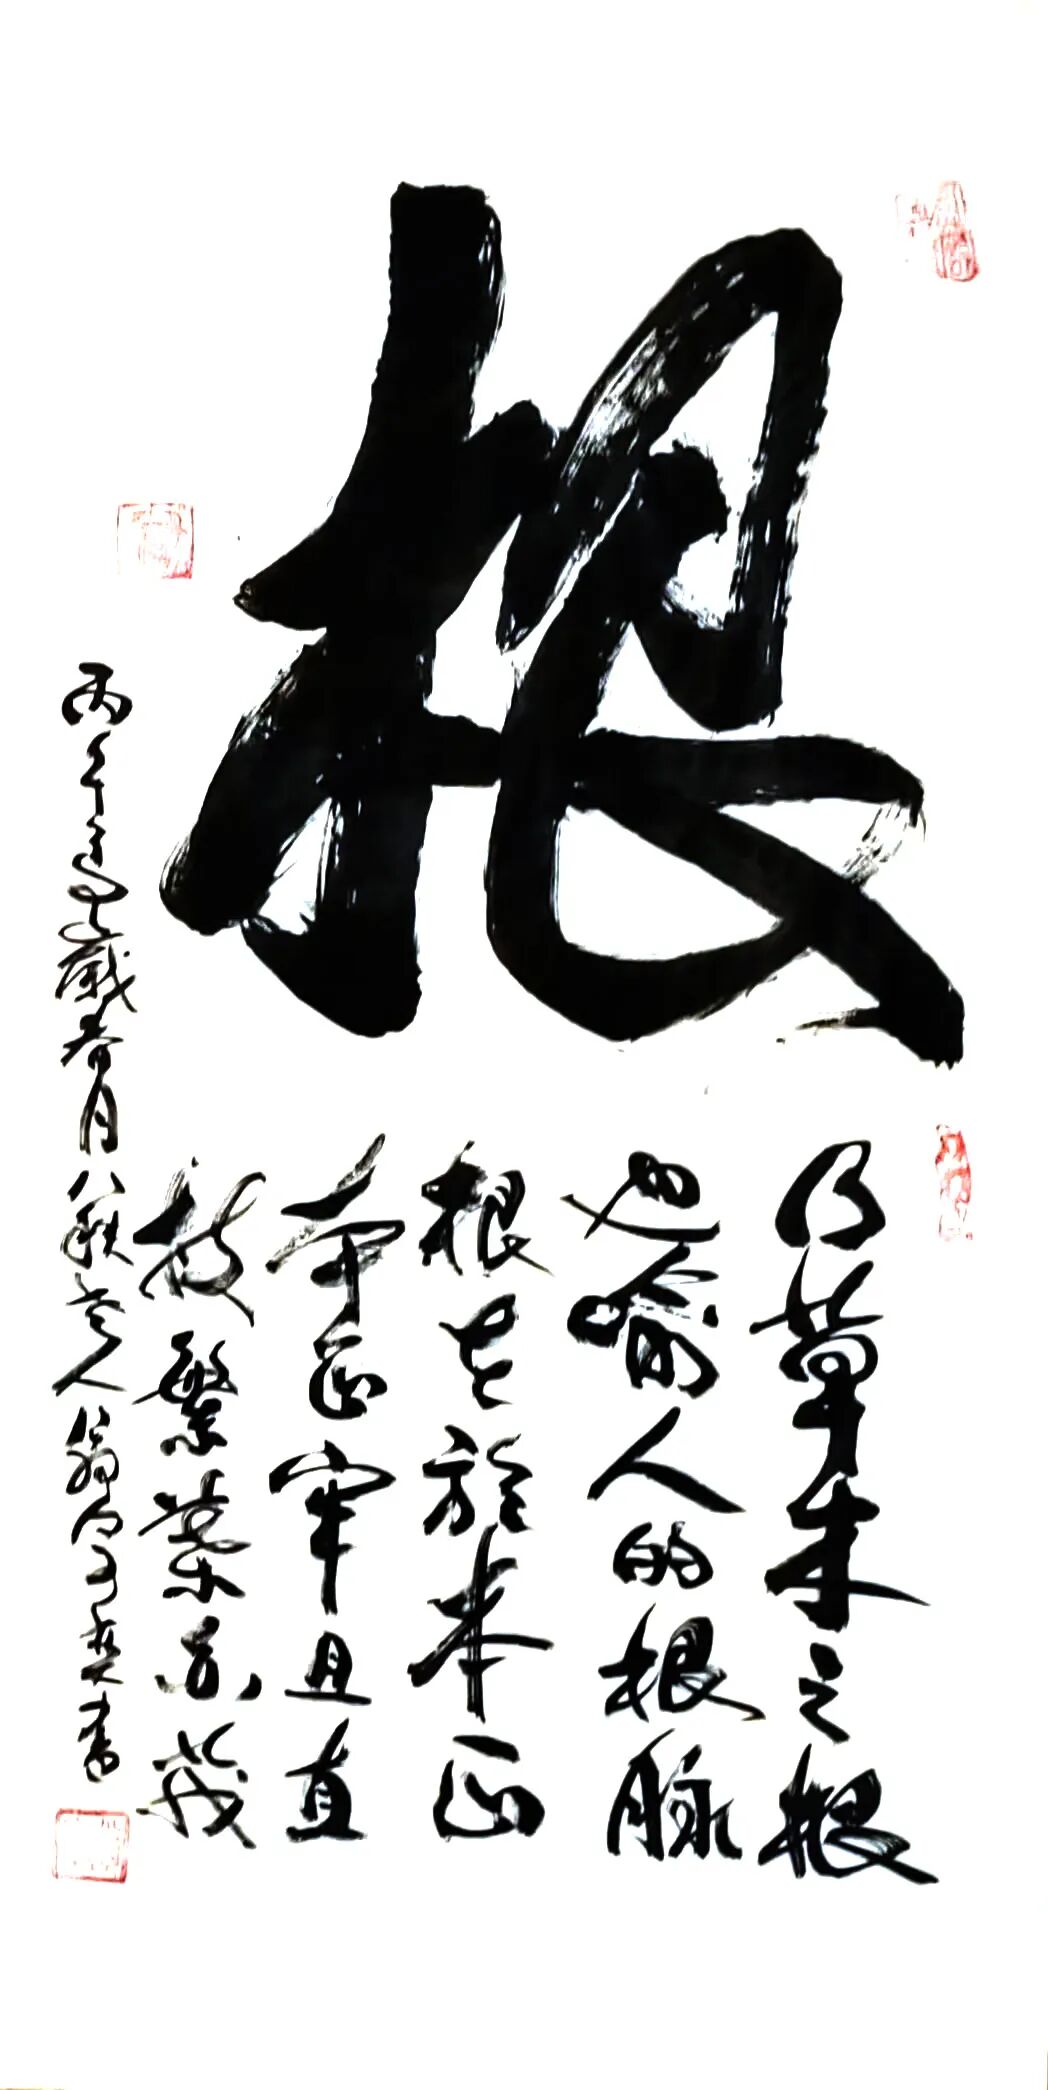 根
乃草木之根
也喻人的根脉
根在於本正
本正牢且直
枝繁葉亦茂
丙午馬歲春月八秩老人翁
書